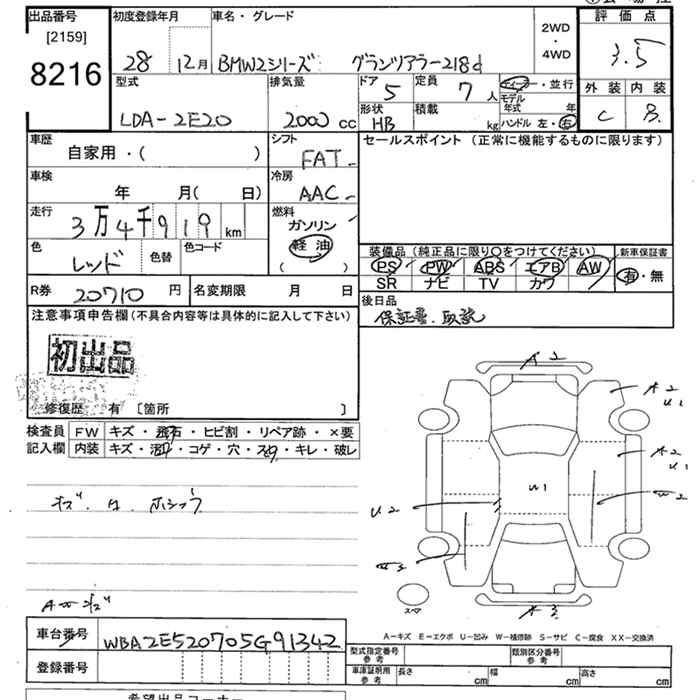 出品番号 初度登録年月 車名・グレード 評価点
[2159]
8216
28 12月 BMW2シリーズ グランツアラー218d
2WD
・
4WD
3.5
型式 排気量 ドア 定員 ディーラー・並行 外装 内装
LDA-2E20 2000 cc 5 7 人
モデル年式 年
形状 積載
HB kg ハンドル 左・右 C B
車歴 シフト セールスポイント (正常に機能するものに限ります)
自家用・( ) FAT
車検 冷房
年 月( 日) AAC
走行 燃料
3万4千919 km ガソリン
軽油
( )
色 色替 色コード
レッド
装備品 (純正品に限り○をつけてください) 新車保証書
PS PW ABS エアB AW 有・無
SR ナビ TV カワ
R券 20710 円 名変期限 月 日
後日品
保証書・取説
注意事項申告欄(不具合内容等は具体的に記入して下さい)
初出品
修復歴 有 [箇所 ]
検査員 FW キズ・飛石・ヒビ割・リペア跡・×要
記入欄 内装 キズ・コゲ・穴・キレ・破レ
A2
A2
U1
A2
U1
U1
U2
W2
A3
スペア
A-キズ E-エクボ U-凹み W-補修跡 S-サビ C-腐食 XX-交換済
車台番号 WBA2E520705G91342
登録番号
型式指定番号 参考 類別区分番号 参考
車庫証明用 参考 長さ cm 幅 cm 高さ cm
希望出品コーナー